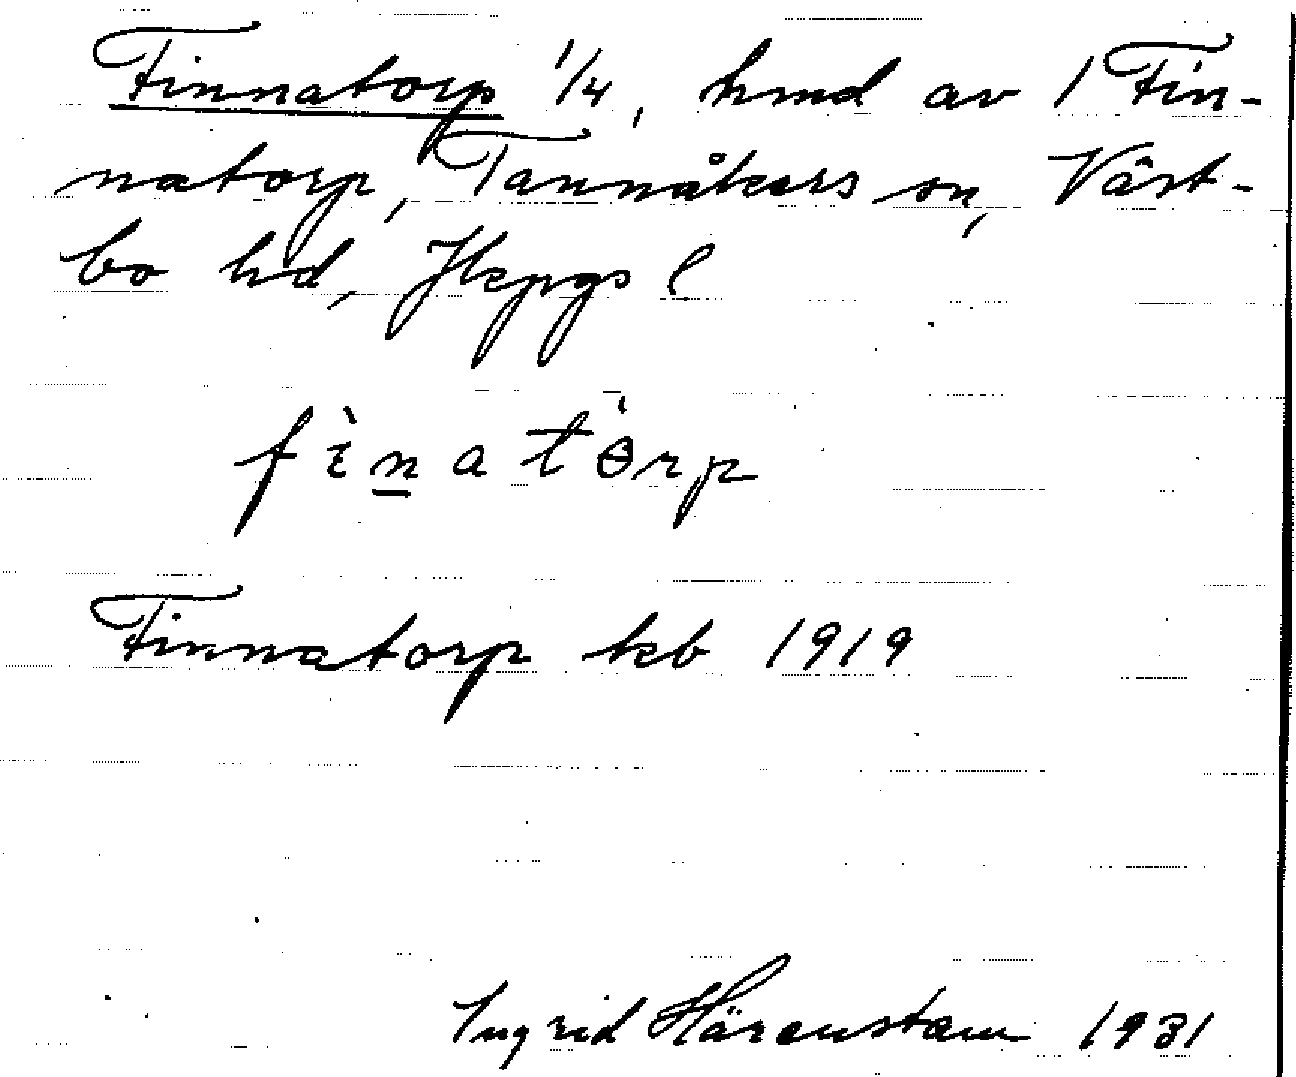 Finnatorp 1/4, hmd av 1 Fin-
natorp, Tannåkers sn, Väst-
bo hd, Jkpgs l
fìnatòrp
Finnatorp kb 1919
Ingrid Härenstam 1931